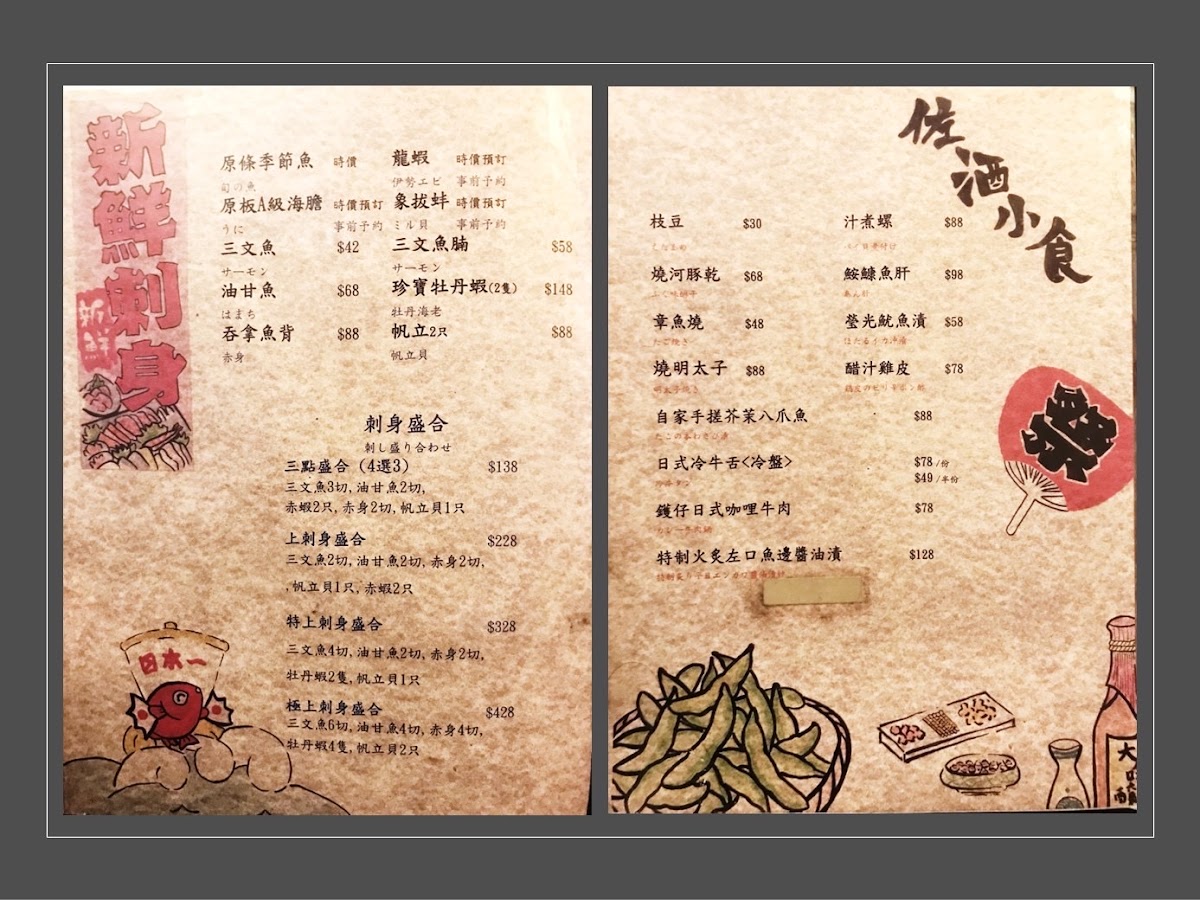 新鮮刺身
新鮮
原條季節魚 時價
旬の魚
原板A級海膽 時價預訂
うに 事前予約
三文魚 $42
サーモン
油甘魚 $68
はまち
吞拿魚背 $88
赤身
龍蝦 時價預訂
伊勢エビ 事前予約
象拔蚌 時價預訂
ミル貝 事前予約
三文魚腩 $58
サーモン
珍寶牡丹蝦(2隻) $148
牡丹海老
帆立2只 $88
帆立貝
刺身盛合
刺し盛り合わせ
三點盛合 (4選3) $138
三文魚3切, 油甘魚2切,
赤蝦2只, 赤身2切, 帆立貝1只
上刺身盛合 $228
三文魚2切, 油甘魚2切, 赤身2切,
帆立貝1只, 赤蝦2只
特上刺身盛合 $328
三文魚4切, 油甘魚2切, 赤身2切,
牡丹蝦2隻, 帆立貝1只
極上刺身盛合 $428
三文魚6切, 油甘魚4切, 赤身4切,
牡丹蝦4隻, 帆立貝2只
日本一
佐酒小食
枝豆 $30
燒河豚乾 $68
章魚燒 $48
たこ焼き
燒明太子 $88
明太子焼き
汁煮螺 $88
鮟鱇魚肝 $98
あん肝
螢光魷魚漬 $58
ほたるイカ沖漬
醋汁雞皮 $78
自家手搓芥茉八爪魚 $88
日式冷牛舌<冷盤> $78 /份
$49 /半份
鑊仔日式咖哩牛肉 $78
特制火炙左口魚邊醬油漬 $128
祭
大